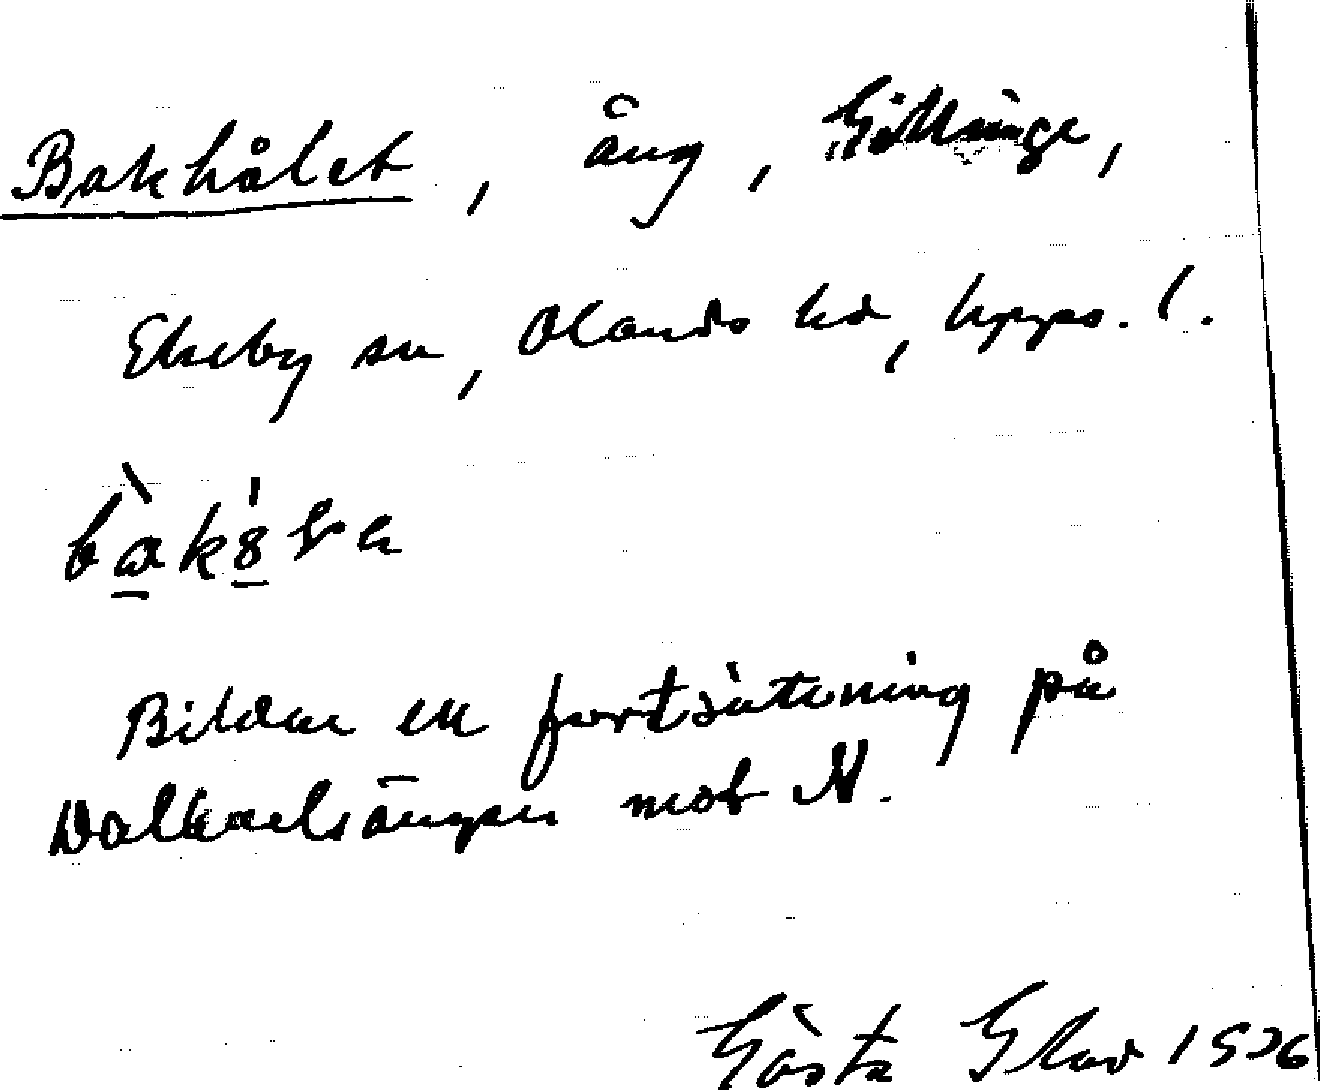 Bakhålet, äng, Gillinge,
Ekeby sn, Olands hd, Upps. l.
Bildar en fortsättning på
Dalkarlsängen mot N.
Gösta Glad 1936